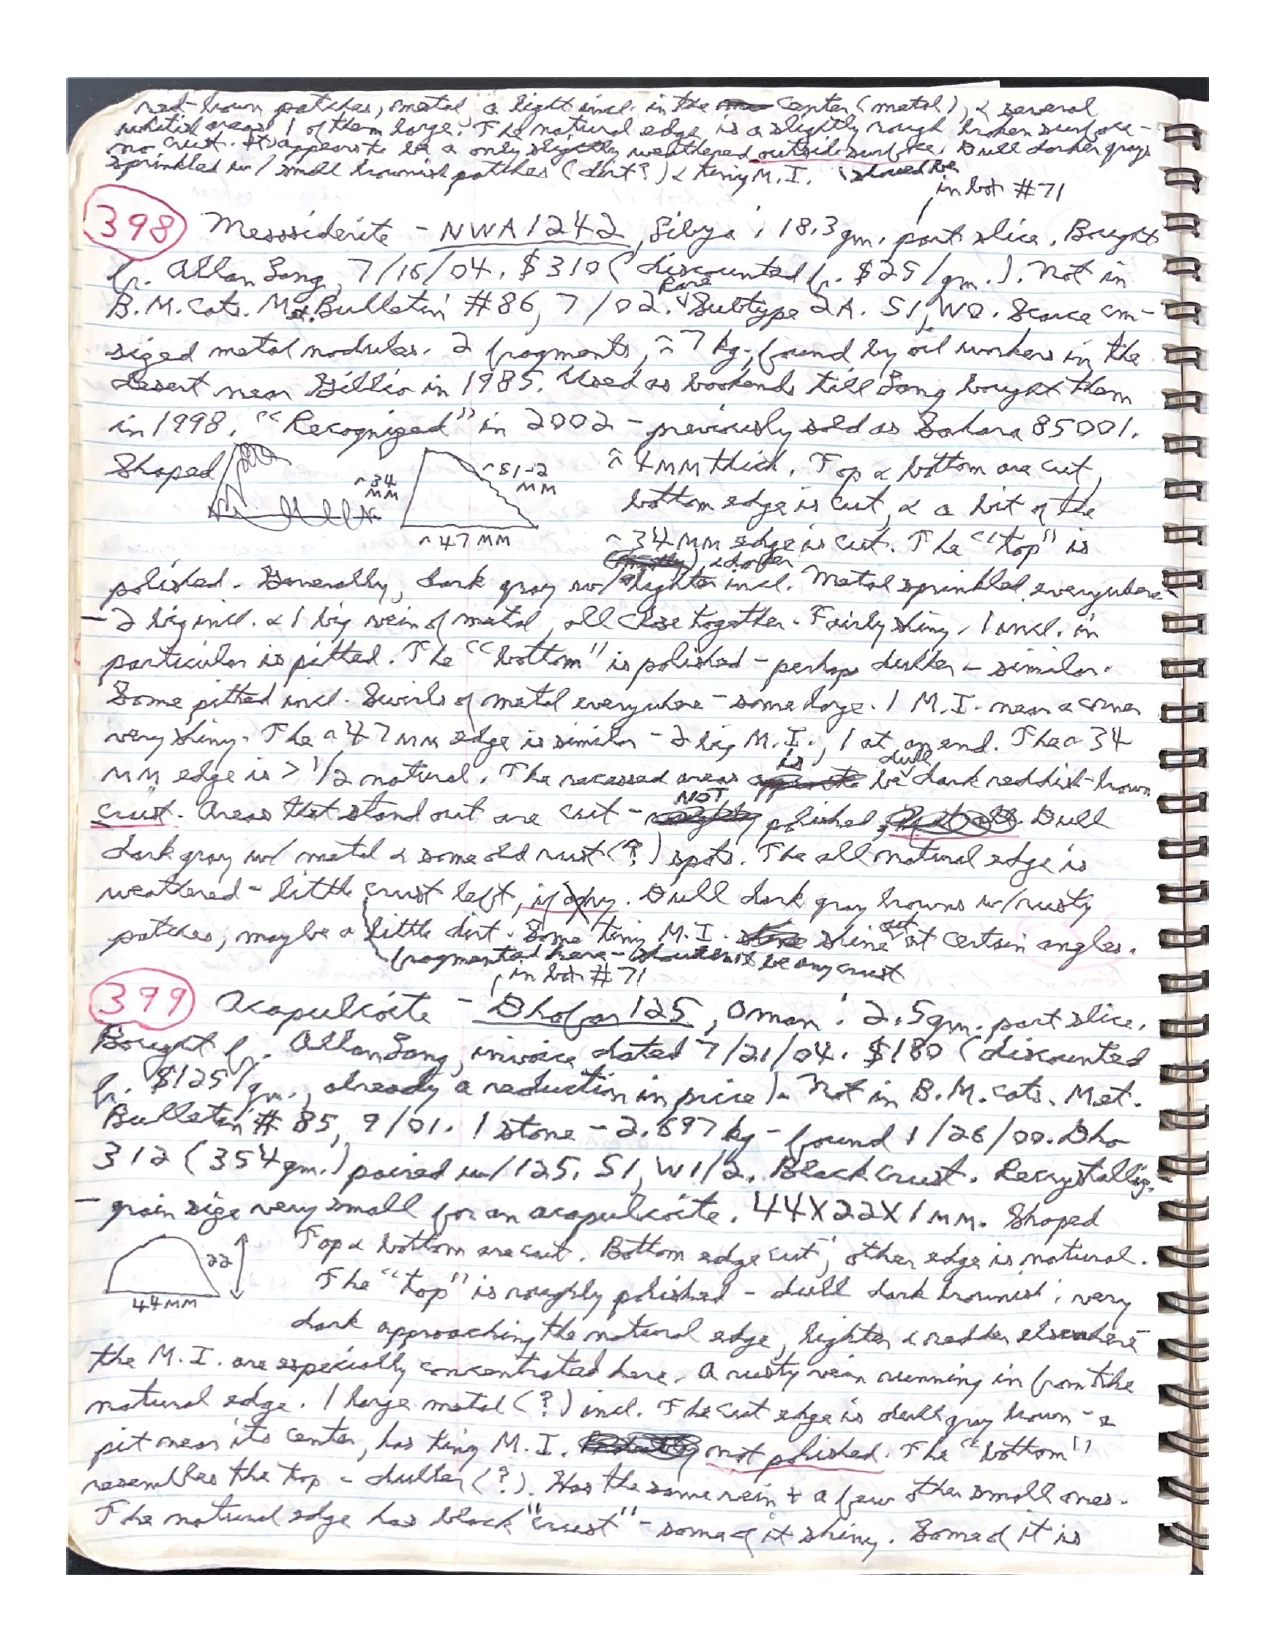 red-brown patches, metal, a light incl. in the center (metal), & several
whitish areas, 1 of them large. The natural edge is a slightly rough broken surface -
no crust. It appears to be a only slightly weathered outside surface. Dull darker grays
sprinkled w/ small brownish patches (dirt?) & tiny M.I. should be
in box #71
398 Messiderite - NWA 1242, Libya; 18.3 gm. part slice. Bought
fr. Allan Lang, 7/15/04. $310 (discounted fr. $25/gm.). Not in
Rare
B.M. Cats. Met. Bulletin #86, 7/02. Subtype 2A. S1, W0. Scarce cm-
sized metal nodules. 2 fragments, ≈7 kg, found by oil workers in the
desert near Gillio in 1985. Used as bookends till Lang bought them
in 1998. "Recognized" in 2002 - previously sold as Sahara 85001.
Shaped ~34 MM ~51-2 MM ~47 MM ≈ 4 MM thick. Top & bottom are cut,
bottom edge is cut, & a bit of the
~34 MM edge is cut. The "top" is
& darker
polished. Generally, dark gray w/ lighter incl. Metal sprinkled everywhere
- 2 big incl. & 1 big vein of metal, all close together. Fairly shiny. 1 incl. in
particular is pitted. The "bottom" is polished - perhaps duller - similar.
Some pitted incl. Swirls of metal everywhere - some large. 1 M.I. near a corner
very shiny. The ~47 MM edge is similar - 2 big M.I., 1 at an end. The ~34
is dull
MM edge is > 1/2 natural. The recessed areas be dark reddish-brown
NOT
crust. Areas that stand out are cut - polished. Dull
dark gray w/ metal & some old rust (?) spots. The all natural edge is
weathered - little crust left, if any. Dull dark gray browns w/ rusty
patches, maybe a little dirt. Some tiny M.I. shine out at certain angles.
fragmented here - shouldn't be any crust
in box #71
399 Acapulcoite - Dhofar 125, Oman; 2.5 gm. part slice.
Bought fr. Allan Lang, invoice dated 7/21/04. $180 (discounted
fr. $125/gm., already a reduction in price). Not in B.M. Cats. Met.
Bulletin #85, 9/01. 1 stone - 2.697 kg - found 1/26/00. Dho
312 (354 gm.) paired w/ 125. S1, W1/2. Black crust. Recrystalliz.
- grain size very small for an acapulcoite. 44X22X1 MM. Shaped
22 44 MM Top & bottom are cut. Bottom edge cut; other edge is natural.
The "top" is roughly polished - dull dark brownish; very
dark approaching the natural edge, lighter & redder elsewhere -
the M.I. are especially concentrated here. A rusty vein running in from the
natural edge. 1 large metal (?) incl. The cut edge is dull gray brown - a
pit near its center, has tiny M.I. not polished. The "bottom"
resembles the top - duller (?). Has the same vein & a few other small ones.
The natural edge has black "crust" - some of it shiny. Some of it is